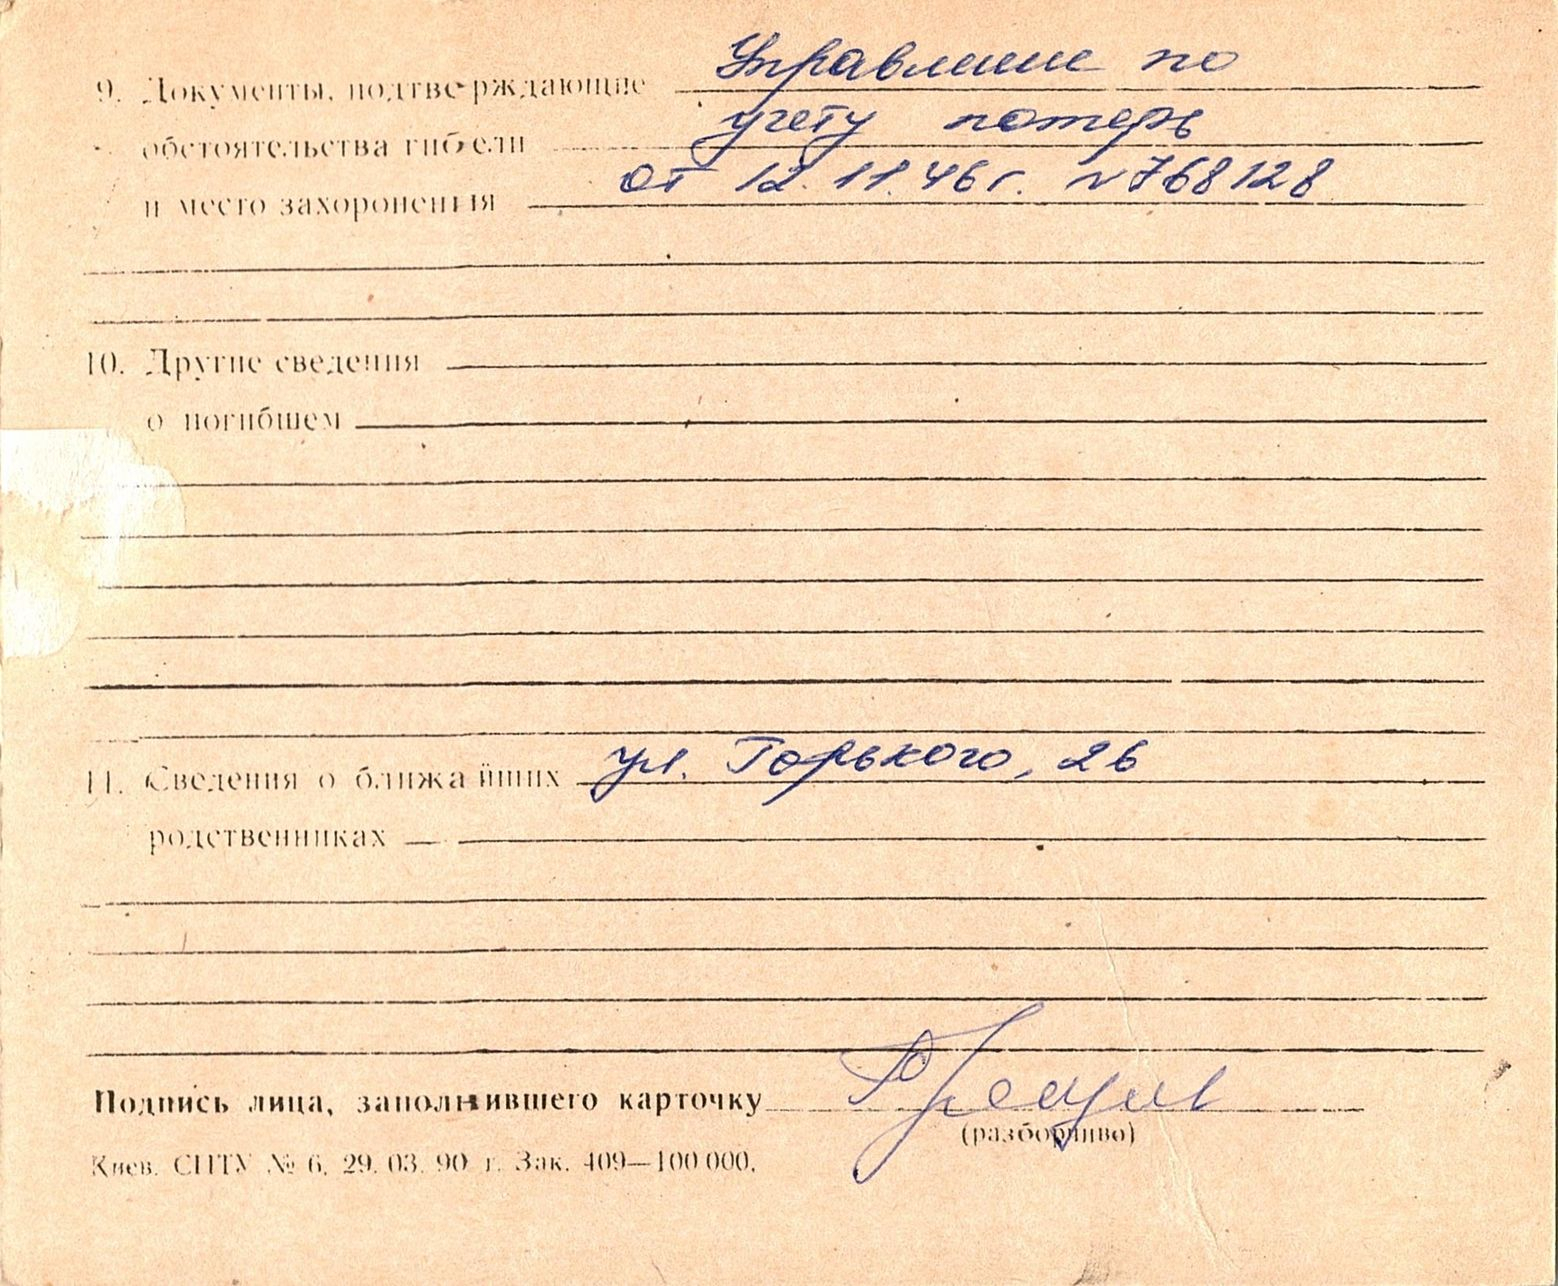 9. Документы, подтверждающие Управление по
обстоятельства гибели учету потерь
и место захоронения от 12.11.46 г. N 768128
10. Другие сведения
о погибшем
11. Сведения о ближайших ул. Горького, 26
родственниках
Подпись лица, заполнившего карточку
(разборчиво)
Киев. СПТУ № 6. 29. 03. 90 г. Зак. 409—100 000.